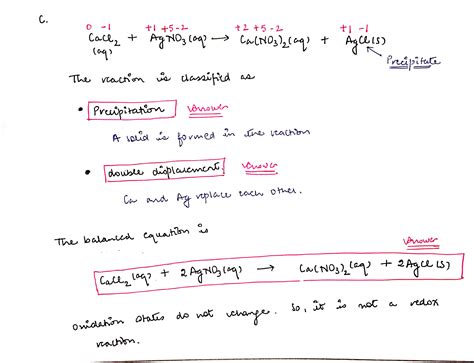 C.
0 -1 +1 +5 -2 +2 +5 -2 +1 -1
CaCl2 (aq) + AgNO3 (aq) → Ca(NO3)2 (aq) + AgCl (s)
Precipitate
The reaction is classified as
• Precipitation Answer
A solid is formed in the reaction
• double displacement. Answer
Ca and Ag replace each other.
The balanced equation is
Answer
CaCl2 (aq) + 2AgNO3 (aq) → Ca(NO3)2 (aq) + 2AgCl (s)
oxidation states do not change. So, it is not a redox
reaction.